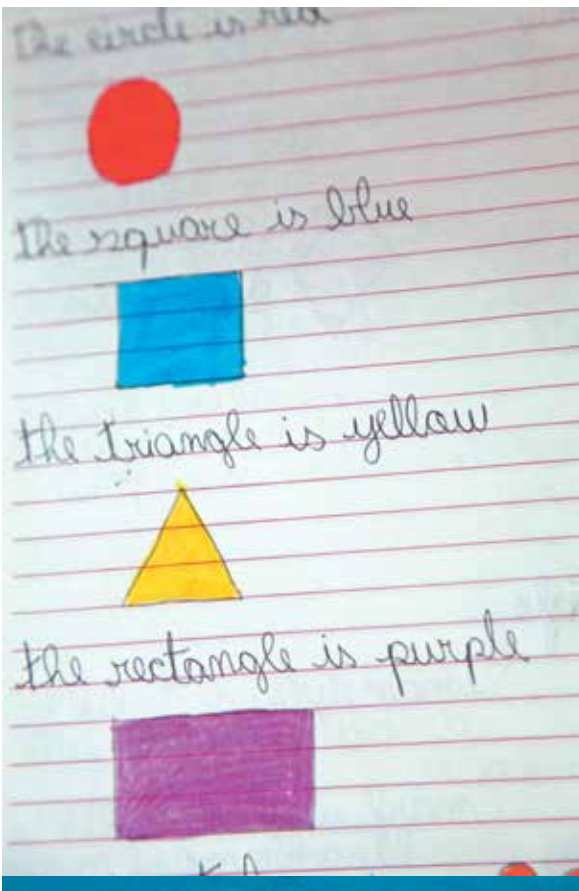 the circle is red
the square is blue
the triangle is yellow
the rectangle is purple